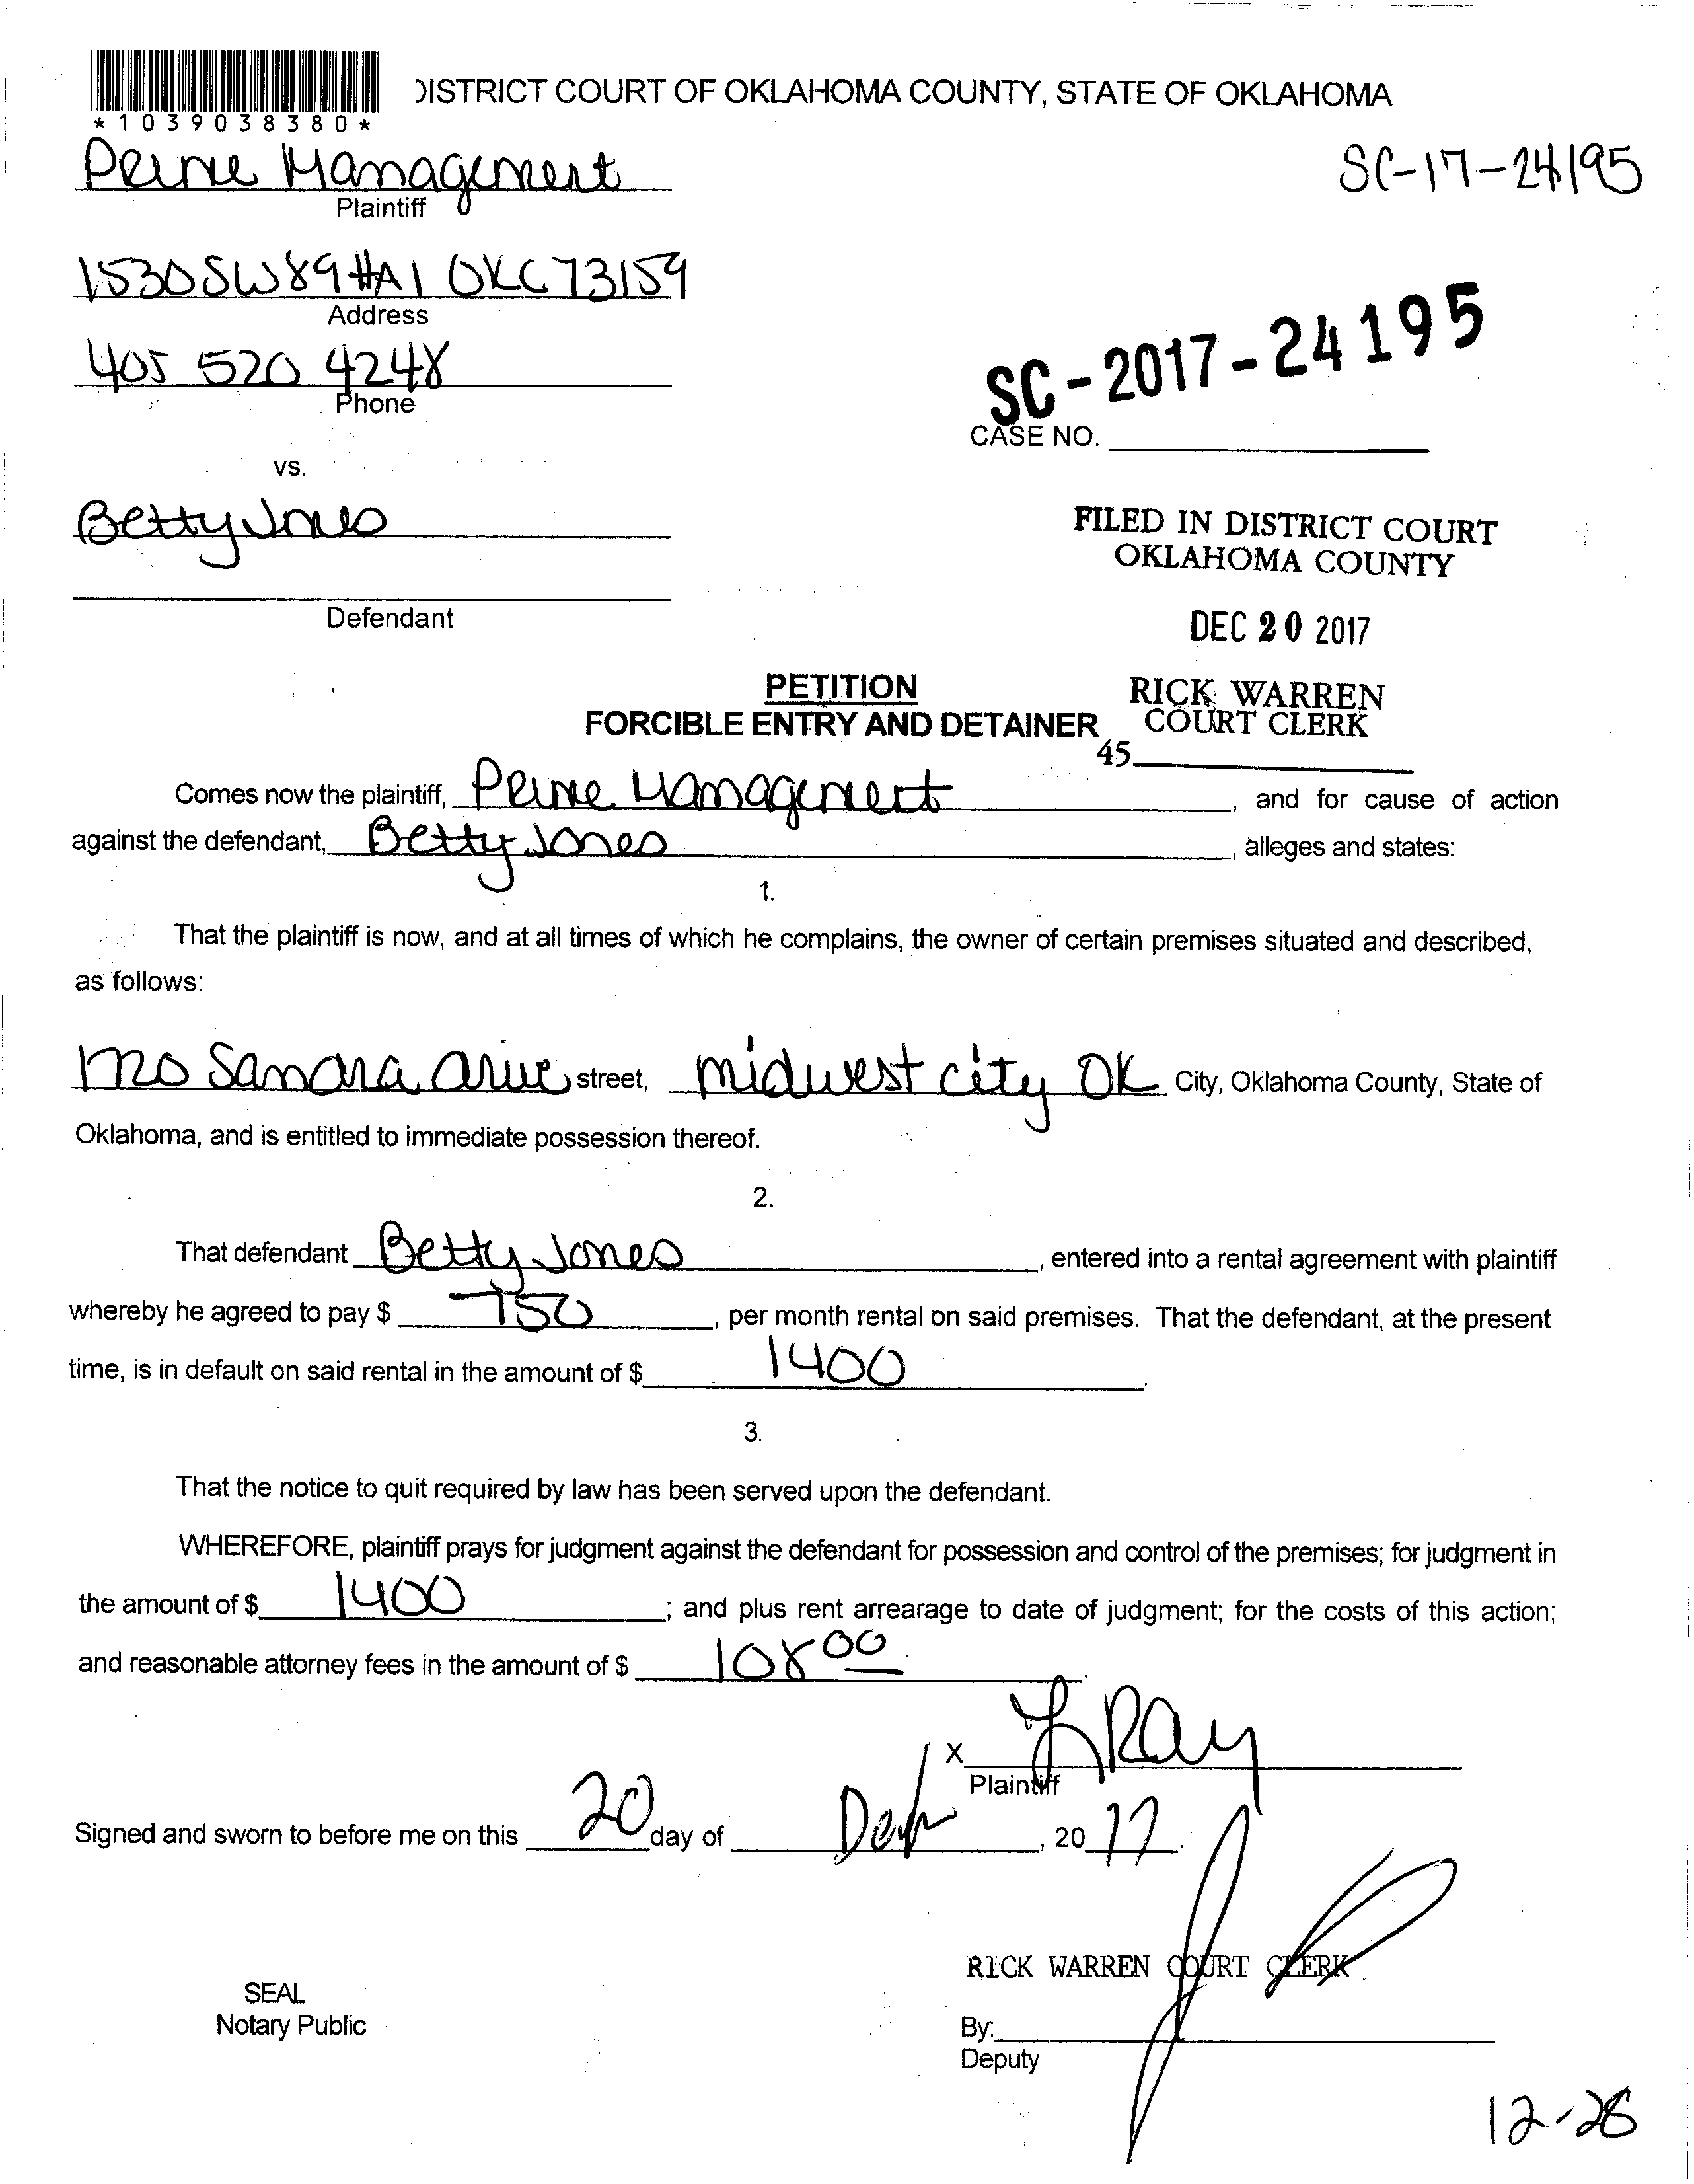 *1039038380*
DISTRICT COURT OF OKLAHOMA COUNTY, STATE OF OKLAHOMA
Prime Management
SC-17-24195
Plaintiff
1530 SW 89 #A1 OKC 73159
Address
405 520 4248
Phone
SC-2017-24195
CASE NO.
vs.
Betty Jones
FILED IN DISTRICT COURT
OKLAHOMA COUNTY
Defendant
DEC 20 2017
PETITION
RICK WARREN
FORCIBLE ENTRY AND DETAINER
COURT CLERK
45
Comes now the plaintiff, Prime Management, and for cause of action
against the defendant, Betty Jones, alleges and states:
1.
That the plaintiff is now, and at all times of which he complains, the owner of certain premises situated and described,
as follows:
Sandra street, midwest city OK City, Oklahoma County, State of
Oklahoma, and is entitled to immediate possession thereof.
2.
That defendant Betty Jones, entered into a rental agreement with plaintiff
whereby he agreed to pay $ 750, per month rental on said premises. That the defendant, at the present
time, is in default on said rental in the amount of $ 1400.
3.
That the notice to quit required by law has been served upon the defendant.
WHEREFORE, plaintiff prays for judgment against the defendant for possession and control of the premises; for judgment in
the amount of $ 1400; and plus rent arrearage to date of judgment; for the costs of this action;
and reasonable attorney fees in the amount of $ 108 00.
X L Ray
Plaintiff
Signed and sworn to before me on this 20 day of Dec, 2017.
RICK WARREN COURT CLERK
SEAL
Notary Public
By:
Deputy
12-28